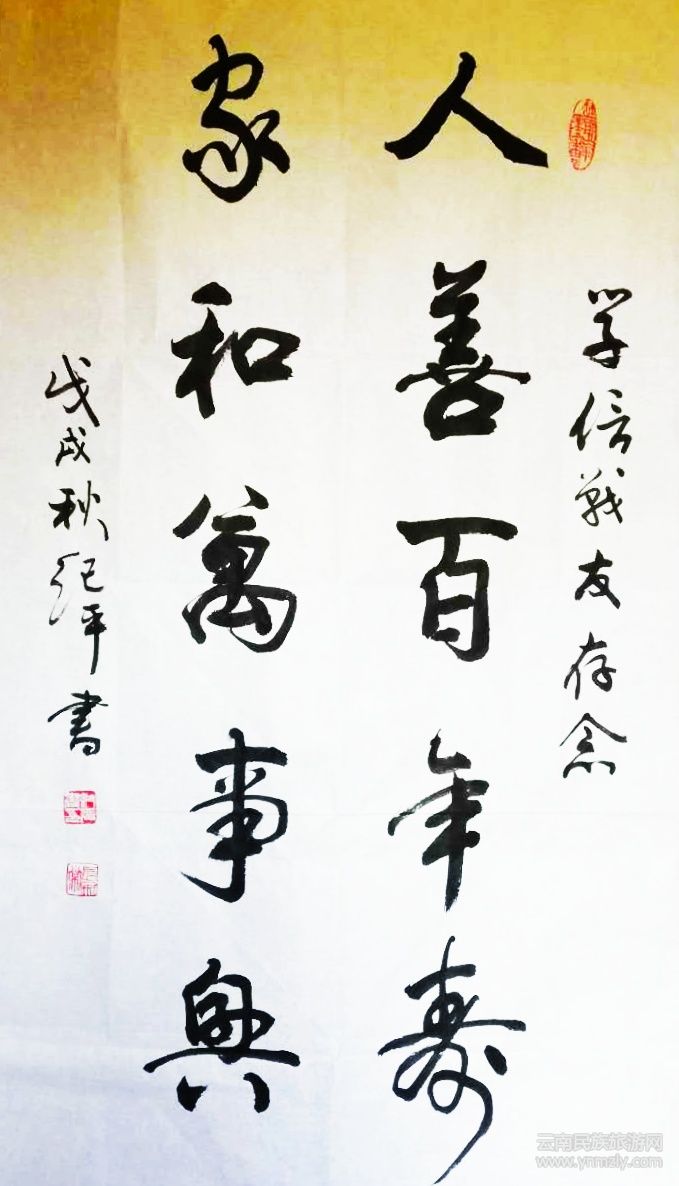 学信戰友存念
人善百年壽
家和萬事興
戊戌秋纪平書
云南民族旅游网
www.ynmzly.com